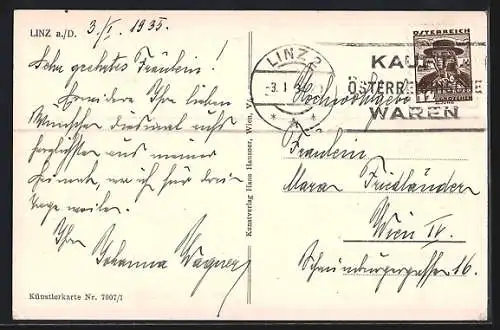 LINZ a./D.
3./I. 1935.
Sehr geehrtes Fräulein!
Erwidere Ihre lieben
Wünsche diesmal aufs
herzlichste aus meiner
Heimat, wo ich für drei
Tage weile.
Ihre
Johanna Wagner
Künstlerkarte Nr. 7007/1
Kunstverlag Hans Hausner, Wien, V.
LINZ 2
-3. I 35
KAUFT
ÖSTERR
WAREN
ÖSTERREICH
Hochwohlgeb.
Fräulein
Mara Friedländer
Wien IV.
Schaumburgergasse 16.